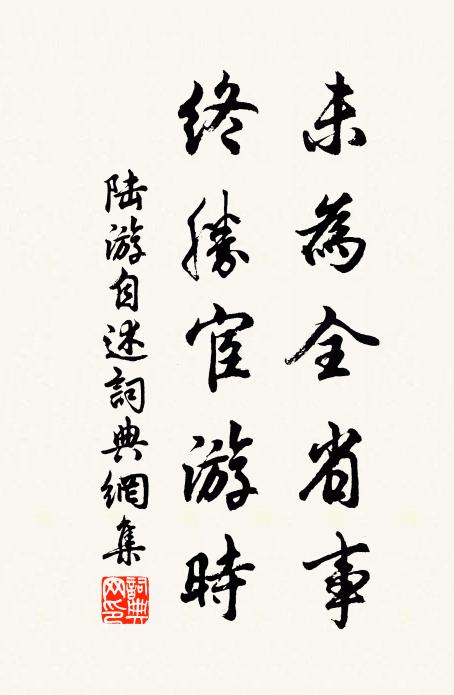 未為全省事
終勝宦游時
陆游自述詞典網集
詞典网印